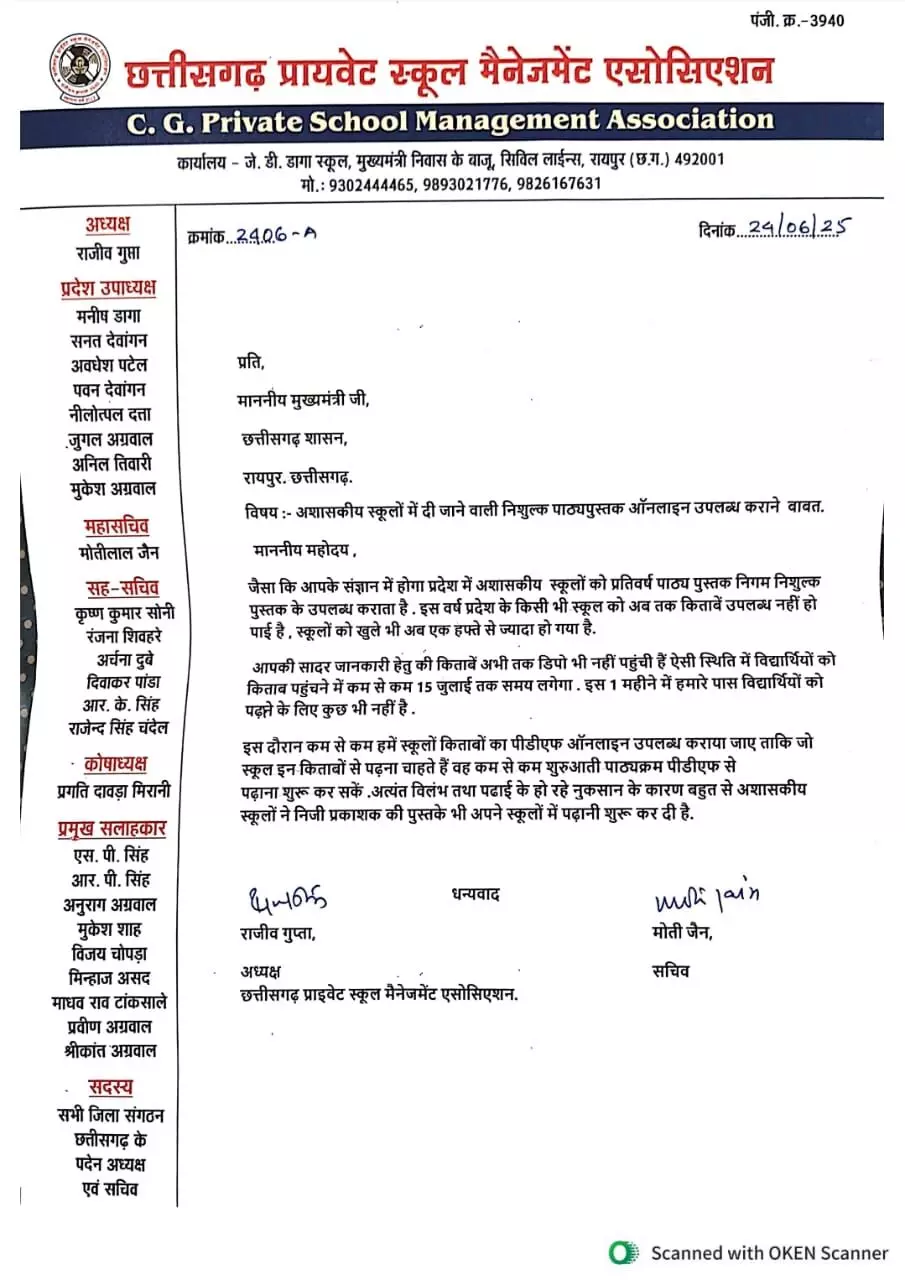 पंजी. क्र.-3940
छत्तीसगढ़ प्रायवेट स्कूल मैनेजमेंट एसोसिएशन
C. G. Private School Management Association
कार्यालय - जे. डी. डागा स्कूल, मुख्यमंत्री निवास के बाजू, सिविल लाईन्स, रायपुर (छ.ग.) 492001
मो.: 9302444465, 9893021776, 9826167631
अध्यक्ष
राजीव गुप्ता
प्रदेश उपाध्यक्ष
मनीष डागा
सनत देवांगन
अवधेश पटेल
पवन देवांगन
नीलोत्पल दत्ता
जुगल अग्रवाल
अनिल तिवारी
मुकेश अग्रवाल
महासचिव
मोतीलाल जैन
सह-सचिव
कृष्ण कुमार सोनी
रंजना शिवहरे
अर्चना दुबे
दिवाकर पांडा
आर. के. सिंह
राजेन्द सिंह चंदेल
कोषाध्यक्ष
प्रगति दावड़ा मिरानी
प्रमुख सलाहकार
एस. पी. सिंह
आर. पी. सिंह
अनुराग अग्रवाल
मुकेश शाह
विजय चोपड़ा
मिन्हाज असद
माधव राव टांकसाले
प्रवीण अग्रवाल
श्रीकांत अग्रवाल
सदस्य
सभी जिला संगठन
छत्तीसगढ़ के
पदेन अध्यक्ष
एवं सचिव
क्रमांक...2406-A
दिनांक...24/06/25
प्रति,
माननीय मुख्यमंत्री जी,
छत्तीसगढ़ शासन,
रायपुर. छत्तीसगढ़.
विषय :- अशासकीय स्कूलों में दी जाने वाली निशुल्क पाठ्यपुस्तक ऑनलाइन उपलब्ध कराने वावत.
माननीय महोदय ,
जैसा कि आपके संज्ञान में होगा प्रदेश में अशासकीय स्कूलों को प्रतिवर्ष पाठ्य पुस्तक निगम निशुल्क
पुस्तक के उपलब्ध कराता है . इस वर्ष प्रदेश के किसी भी स्कूल को अब तक किताबें उपलब्ध नहीं हो
पाई है , स्कूलों को खुले भी अब एक हफ्ते से ज्यादा हो गया है.
आपकी सादर जानकारी हेतु की किताबें अभी तक डिपो भी नहीं पहुंची हैं ऐसी स्थिति में विद्यार्थियों को
किताब पहुंचने में कम से कम 15 जुलाई तक समय लगेगा . इस 1 महीने में हमारे पास विद्यार्थियों को
पढ़ाने के लिए कुछ भी नहीं है .
इस दौरान कम से कम हमें स्कूलों किताबों का पीडीएफ ऑनलाइन उपलब्ध कराया जाए ताकि जो
स्कूल इन किताबों से पढ़ना चाहते हैं वह कम से कम शुरुआती पाठ्यक्रम पीडीएफ से
पढ़ाना शुरू कर सकें .अत्यंत विलंभ तथा पढाई के हो रहे नुकसान के कारण बहुत से अशासकीय
स्कूलों ने निजी प्रकाशक की पुस्तके भी अपने स्कूलों में पढ़ानी शुरू कर दी है.
धन्यवाद
Moti Jain
राजीव गुप्ता,
मोती जैन,
अध्यक्ष
सचिव
छत्तीसगढ़ प्राइवेट स्कूल मैनेजमेंट एसोसिएशन.
Scanned with OKEN Scanner